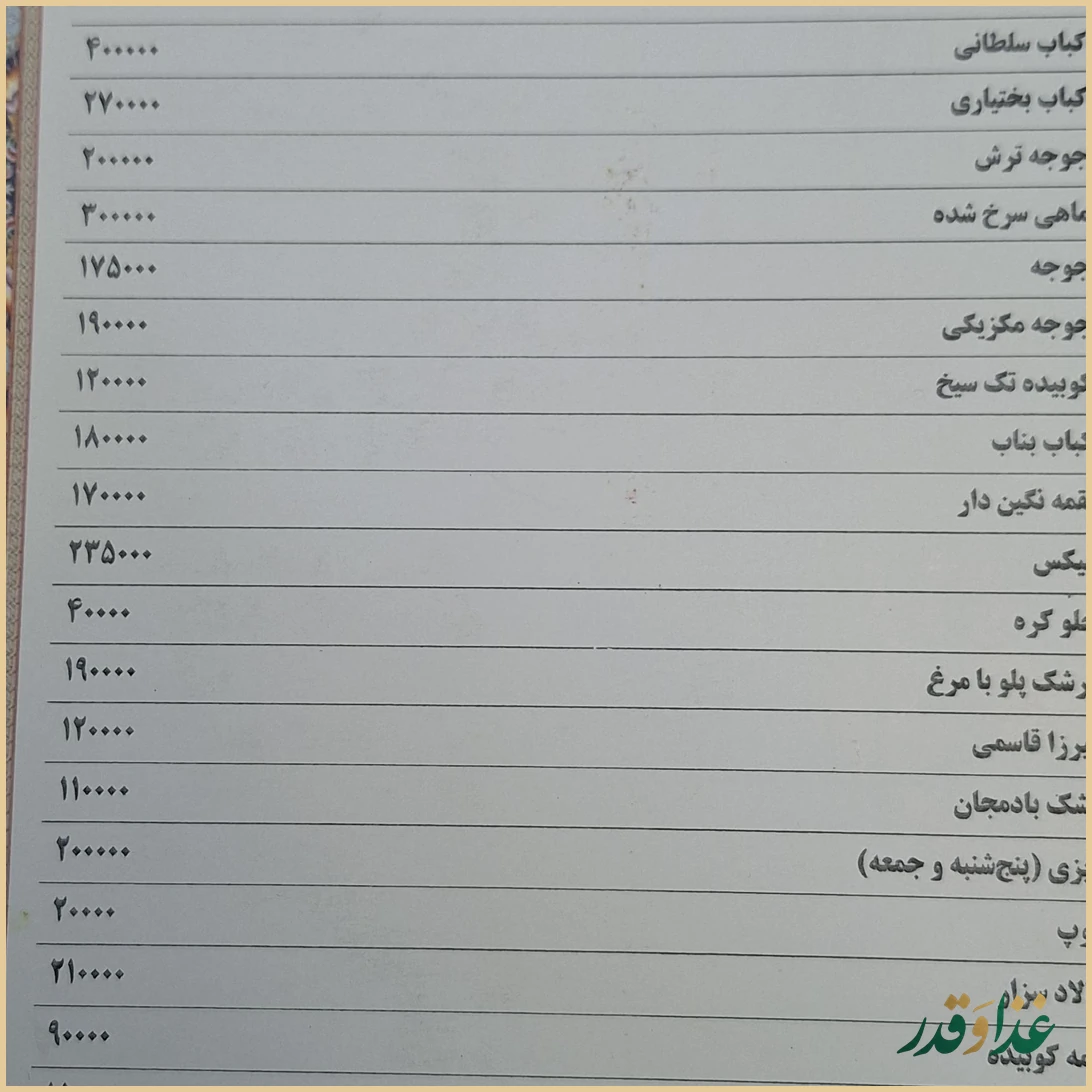 کباب سلطانی ۴۰۰۰۰۰
کباب بختیاری ۲۷۰۰۰۰
جوجه ترش ۲۰۰۰۰۰
ماهی سرخ شده ۳۰۰۰۰۰
جوجه ۱۷۵۰۰۰
جوجه مکزیکی ۱۹۰۰۰۰
کوبیده تک سیخ ۱۲۰۰۰۰
کباب بناب ۱۸۰۰۰۰
نگین دار ۱۷۰۰۰۰
۲۳۵۰۰۰
کره ۴۰۰۰۰
پلو با مرغ ۱۹۰۰۰۰
قاسمی ۱۲۰۰۰۰
بادمجان ۱۱۰۰۰۰
(پنج‌شنبه و جمعه) ۲۰۰۰۰۰
۲۰۰۰۰
سزار ۲۱۰۰۰۰
کوبیده ۹۰۰۰۰
غذا و قدر